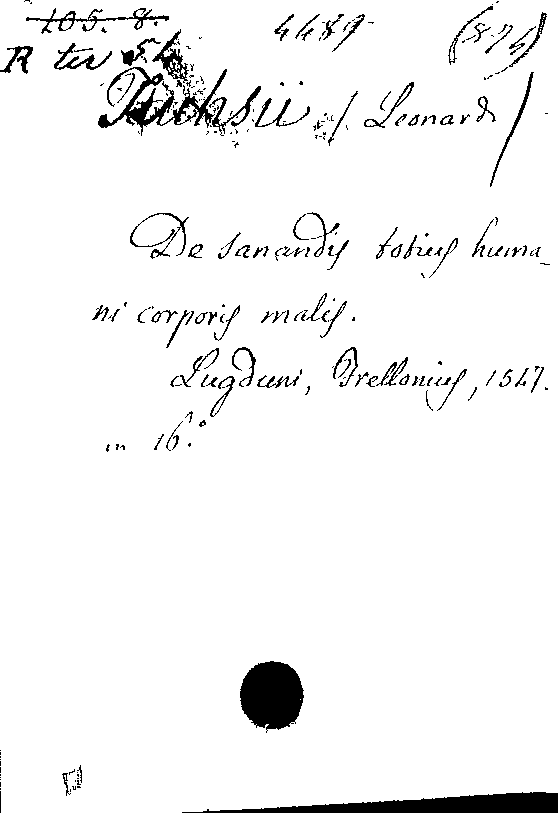 105. 8. 4489 (874)
R ter 54
Fuchsii / Leonard /
De sanandis totius huma-
ni corporis malis.
Lugduni, Frellonius, 1547.
in 16.°